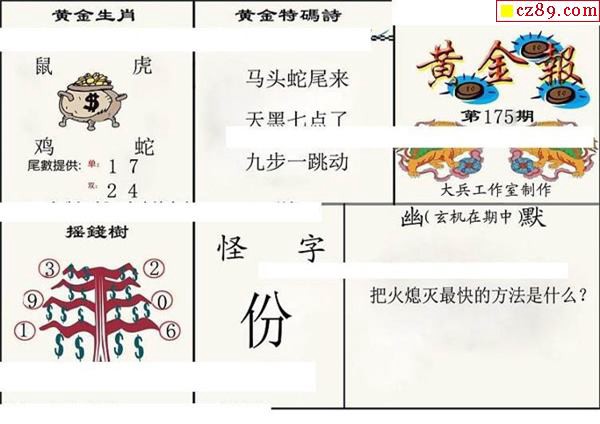 cz89.com
黄金生肖
鼠 虎
鸡 蛇
尾數提供: 单: 1 7
双: 2 4
黄金特碼詩
马头蛇尾来
天黑七点了
九步一跳动
黄金報
第175期
大兵工作室制作
摇錢樹
3 2
9 0
1 6
怪 字
份
幽(玄机在期中)默
把火熄灭最快的方法是什么?